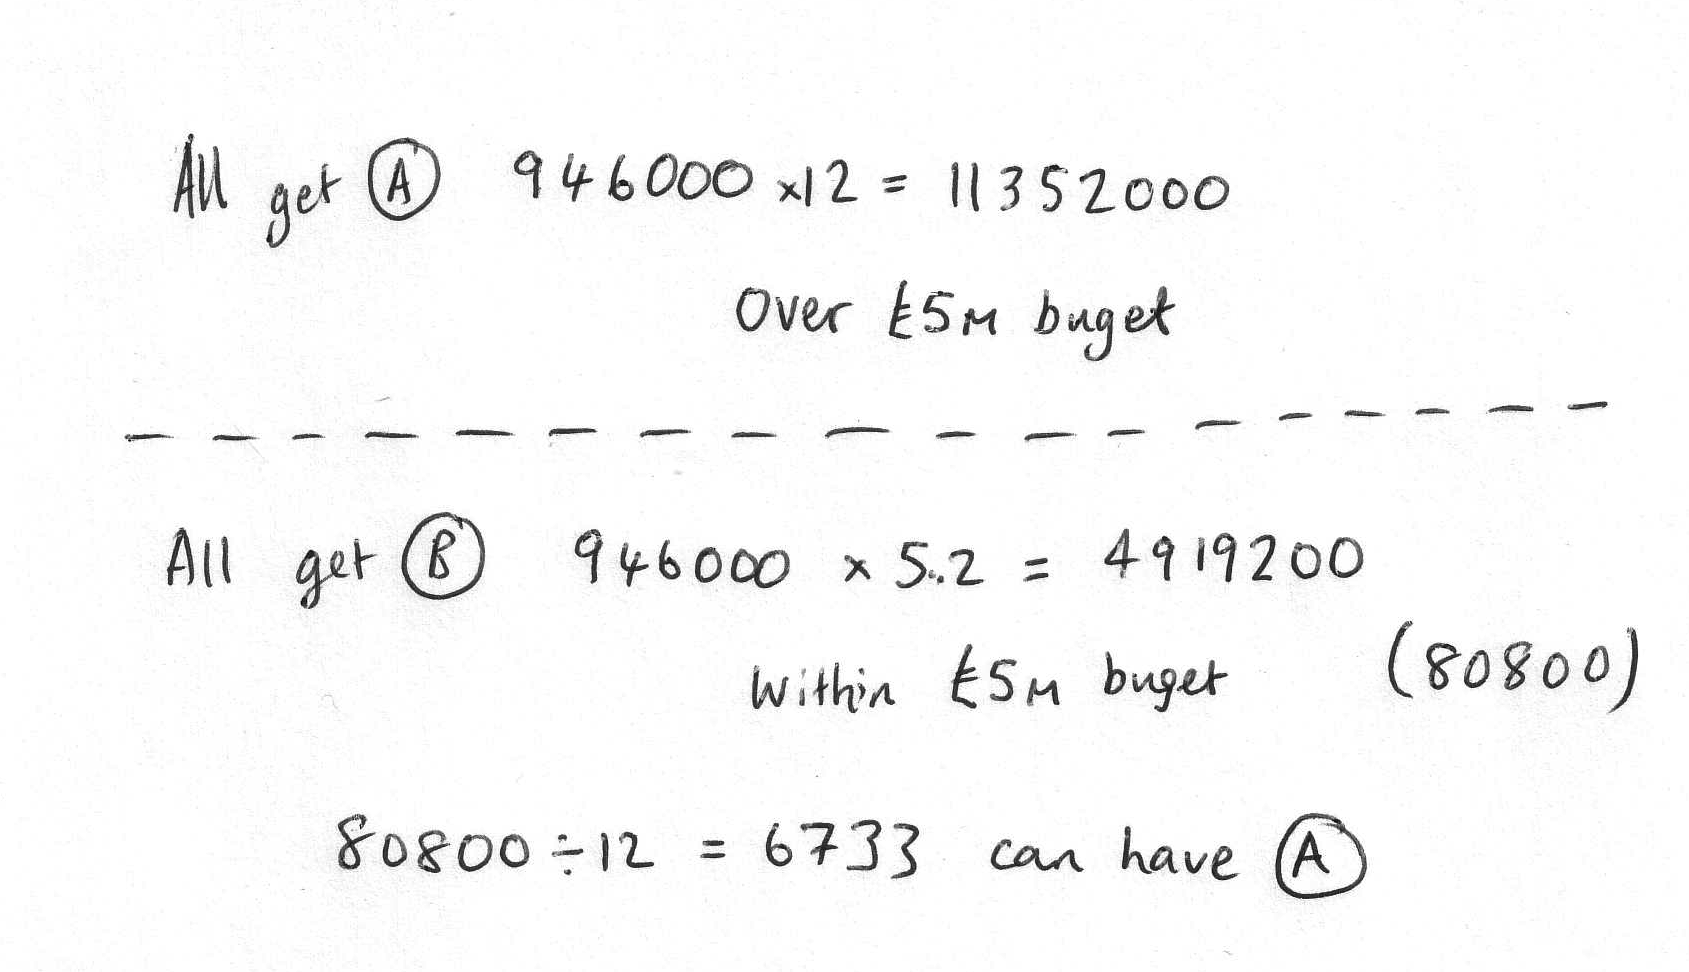 All get Ⓐ 946000 ×12 = 11352000
Over £5M buget
All get Ⓑ 946000 × 5.2 = 4919200
Within £5M buget (80800)
80800 ÷ 12 = 6733 can have Ⓐ